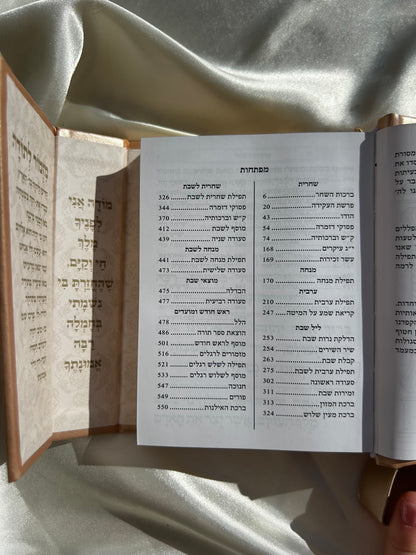 מפתחות
שחרית
ברכות השחר 6
פרשת העקידה 20
הודו 43
פסוקי דזמרה 54
ק״ש וברכותיה 74
י״ג עיקרים 168
עשר זכירות 169
מנחה
תפילת מנחה 170
ערבית
תפילת ערבית 210
קריאת שמע על המיטה 247
ליל שבת
הדלקת נרות שבת 253
שיר השירים 254
קבלת שבת 263
תפילת ערבית לשבת 275
סעודה ראשונה 302
זמירות שבת 310
ברכת המזון 313
ברכת מעין שלוש 324
שחרית לשבת
תפילת שחרית לשבת 326
פסוקי דזמרה 344
ק״ש וברכותיה 370
מוסף לשבת 412
סעודה שניה 439
מנחה לשבת
תפילת מנחה לשבת 441
סעודה שלישית 473
מוצאי שבת
הבדלה 475
סעודה רביעית 477
ראש חודש ומועדים
הלל 478
הוצאת ספר תורה 486
מוסף לראש חודש 501
מזמורים לרגלים 516
תפילה לשלש רגלים 521
מוסף לשלש רגלים 533
חנוכה 547
פורים 549
ברכת האילנות 550
מודה אני
לפניך
מלך
חי וקיים,
שהחזרת בי
נשמתי
בחמלה
רבה
אמונתך